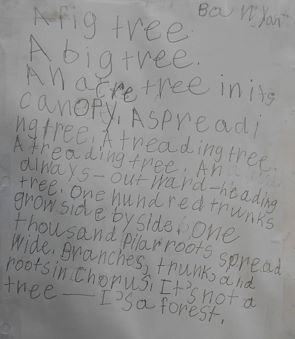 Banyan
A fig tree.
A big tree.
An acre tree in its
canopy, A spreadi
ng tree. A treading tree.
A treading tree. An
always-outward-heading
tree. One hundred trunks
grow side by side. One
thousand Pilar roots spread
wide. Branches, trunks and
roots in Chorus. It's not a
tree — It's a forest.